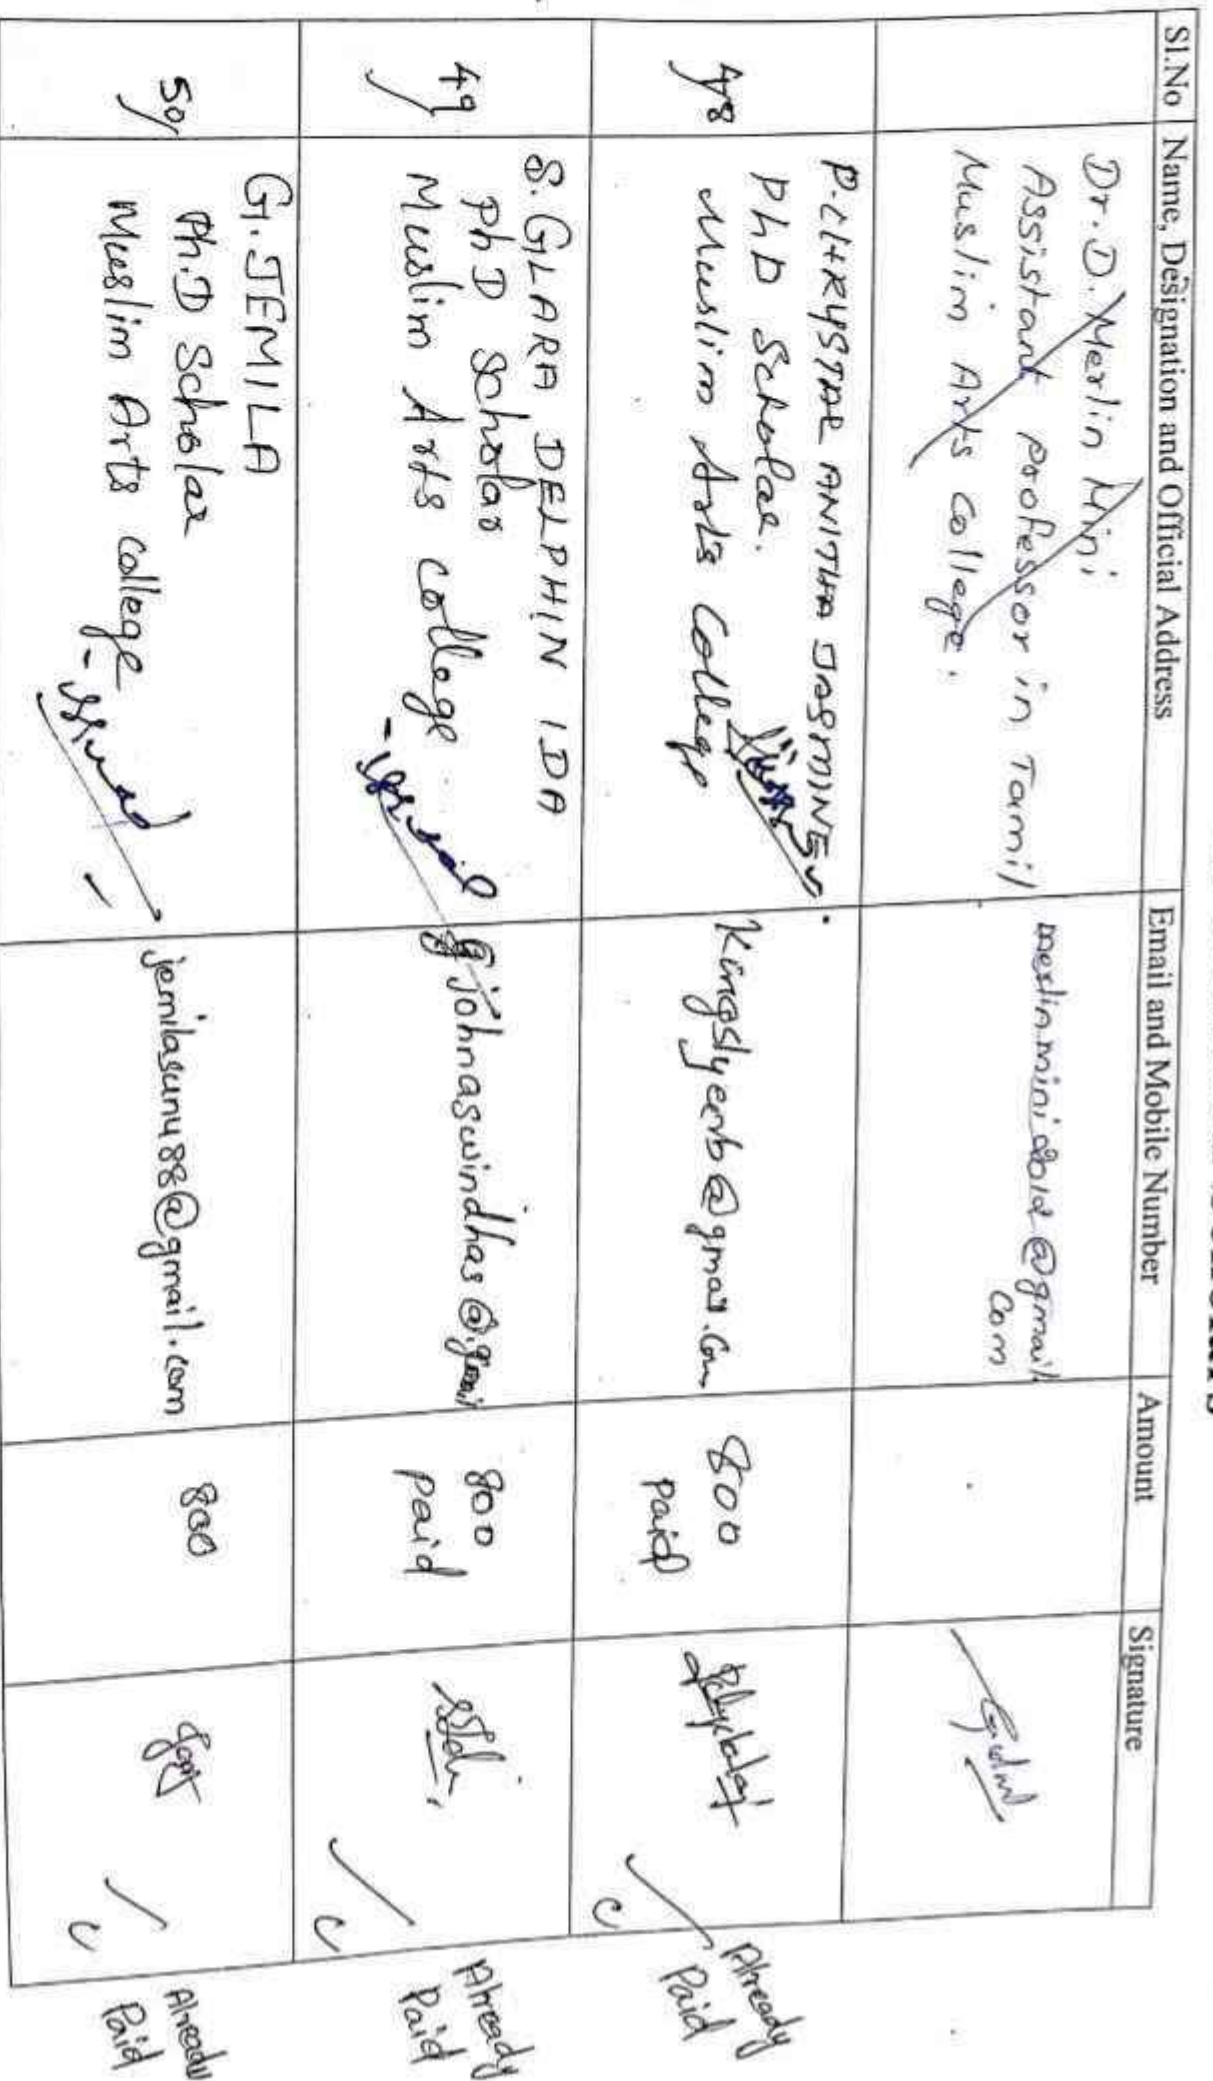 Sl.No Name, Designation and Official Address Email and Mobile Number Amount Signature
Dr. D. Merlin Mini
Assistant professor in Tamil
Muslim Arts college.
@gmail.
com
48
P. CHRYSTAL ANITHA JASMINE
PhD Scholar.
Muslim Arts College
800
paid
Already
Paid
C
49
S. GLARA DELPHIN IDA
PhD Scholar
Muslim Arts college
- issued
johnaswindhas@gmail
800
paid
Already
Paid
C
50
G. JEMILA
Ph.D Scholar
Muslim Arts college
- issued
jemilasunu88@gmail.com
800
Already
Paid
C